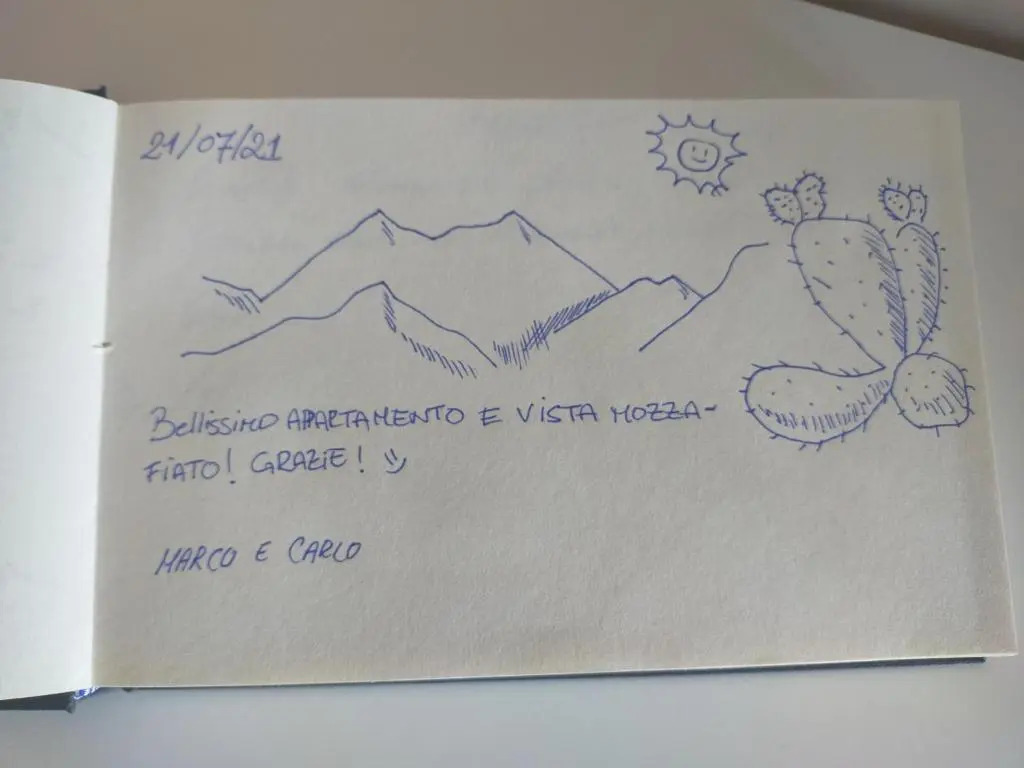 21/07/21
Bellissimo APARTAMENTO E VISTA MOZZA-
FIATO! GRAZIE! :)
MARCO E CARLO